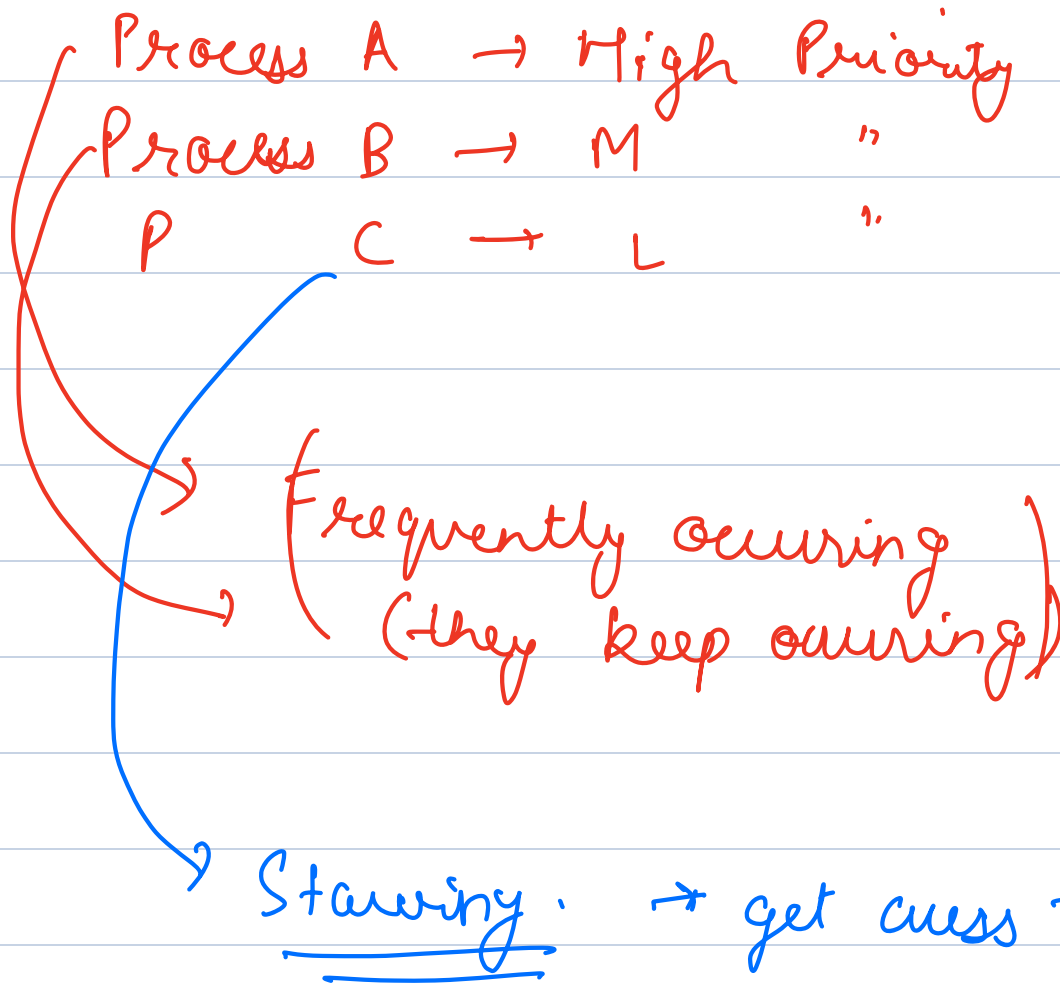 Process A → High Priority
Process B → M "
P C → L "
(Frequently occuring
(they keep occuring)
Starving. → get access